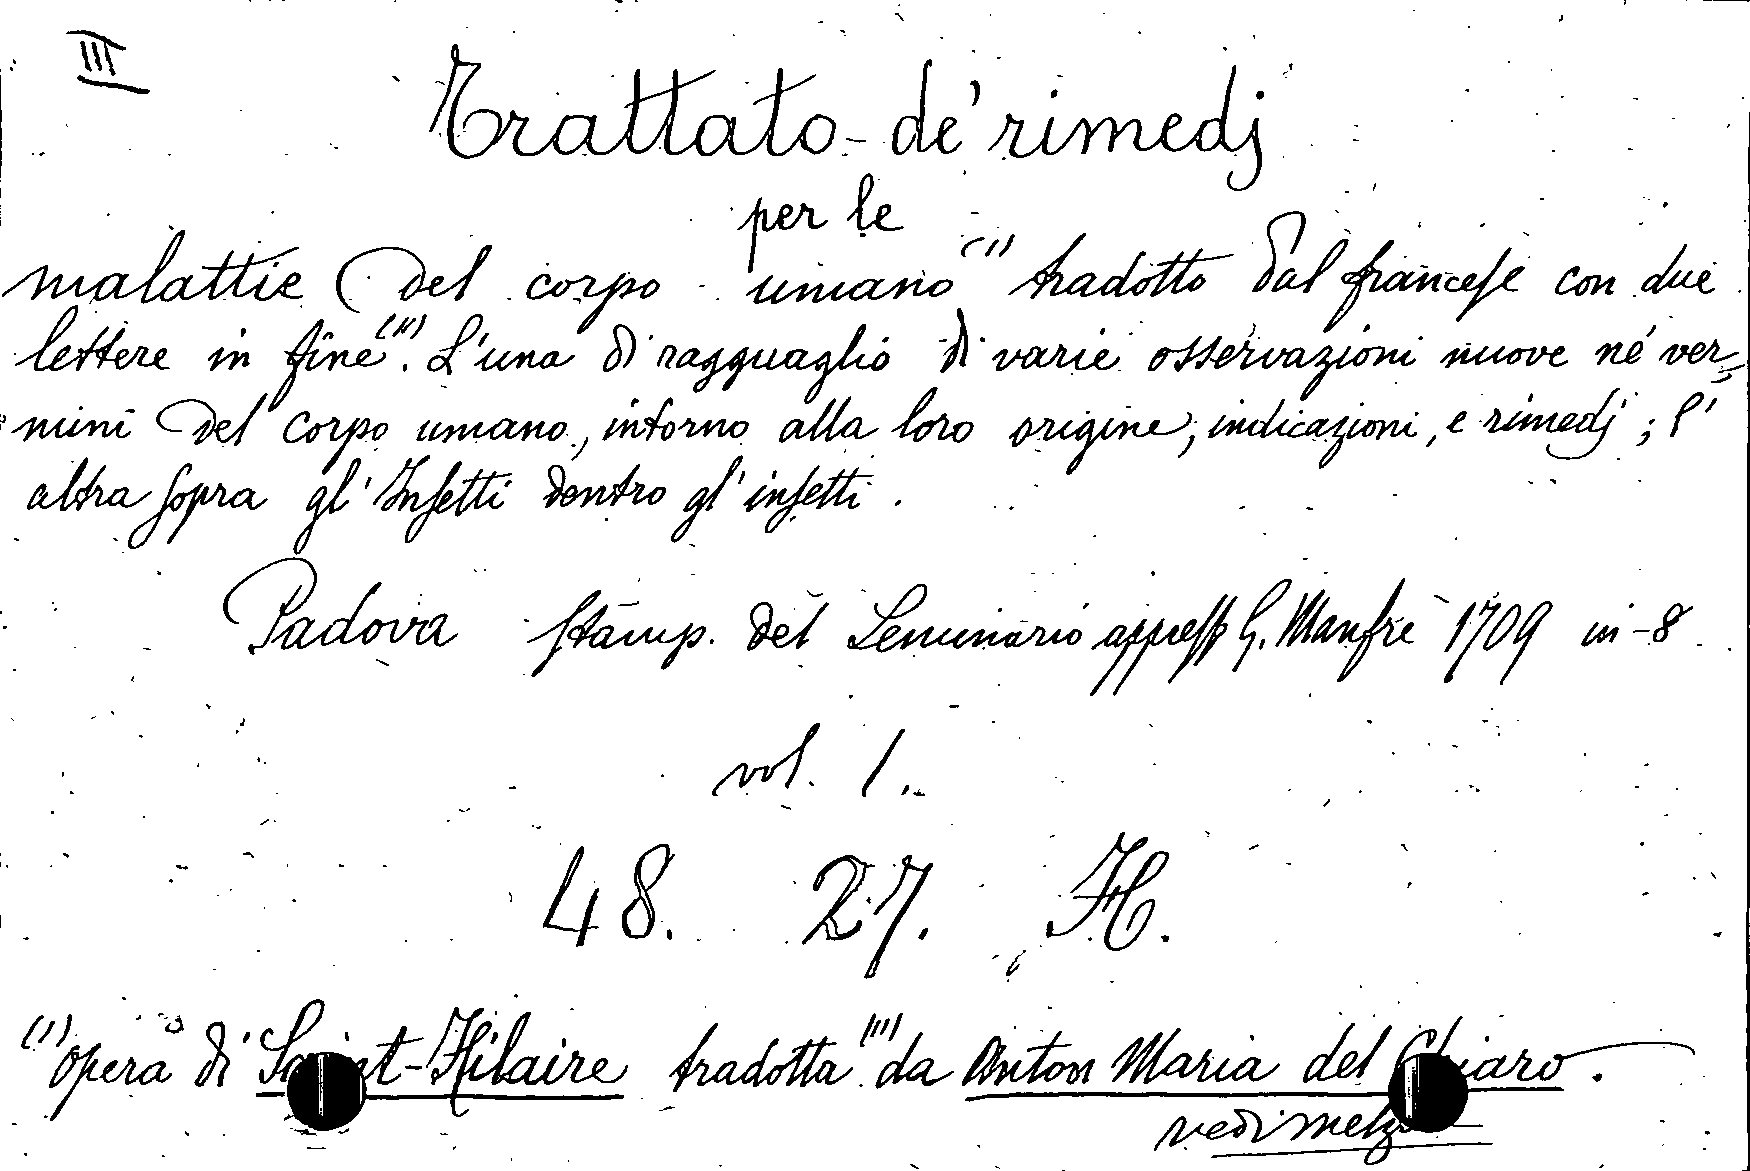 III
Trattato de' rimedj
per le
malattie del corpo umano (1) tradotto dal francese con due
lettere in fine (11). L'una di ragguaglio di varie osservazioni nuove né ver=
mini del corpo umano, intorno alla loro origine, indicazioni, e rimedj; l'
altra sopra gl' Insetti dentro gl' insetti.
Padova stamp. del Seminario appresso G. Manfrè 1709 in-8
vol. 1.
48. 27. H.
(1) opera di Saint-Hilaire tradotta (11) da Anton Maria del Chiaro.
vedi Melzi